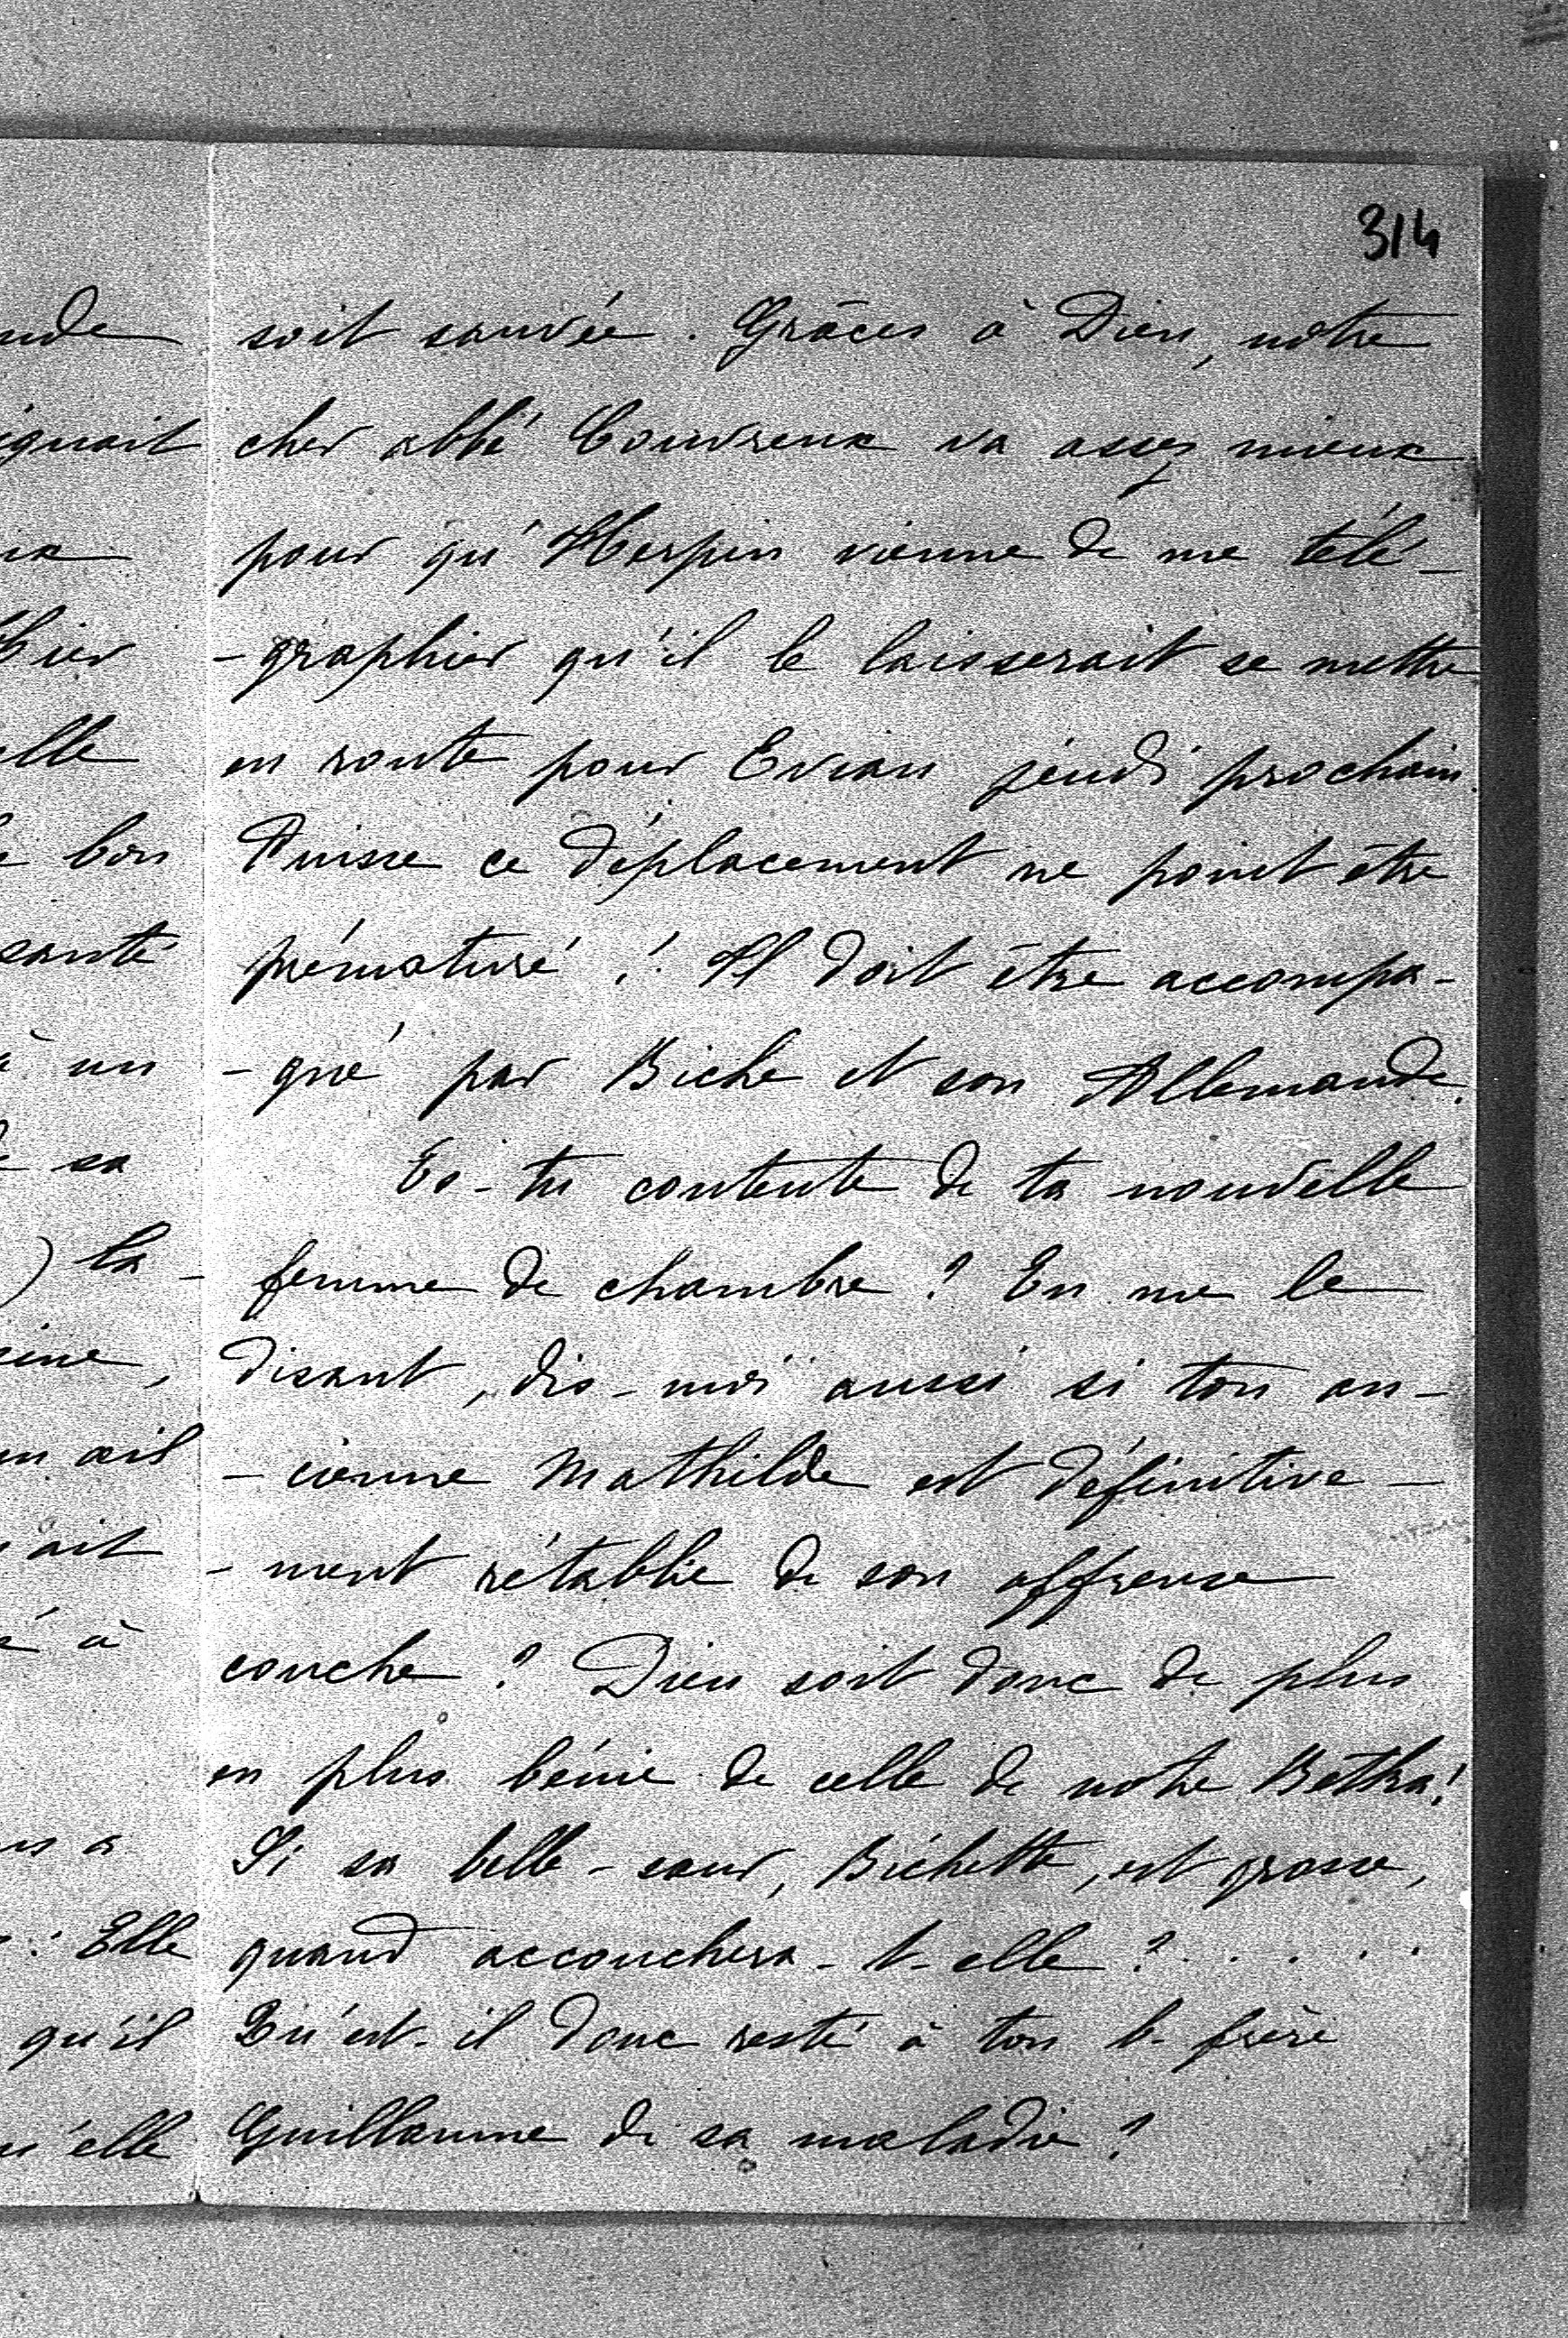 314
soit sauvée. Grâces à Dieu, notre
cher abbé Couvreux va assez mieux
pour qu'Herpin vienne de me télé-
-graphier qu'il le laisserait se mettre
en route pour Evian jeudi prochain.
Puisse ce déplacement ne point être
prématuré ! Il doit être accompa-
-gné par Biche et son Allemande.
Es-tu contente de ta nouvelle
femme de chambre ? En me le
disant, dis-moi aussi si ton an-
-cienne Mathilde est définitive-
-ment rétablie de son affreuse
couche ? Dieu soit donc de plus
en plus bénie de celle de notre Betha !
Si sa belle-sœur, Bichette, est grosse,
quand accouchera-t-elle ? . . . . .
Qu'est-il donc resté à ton b-frère
Guillaume de sa maladie ?